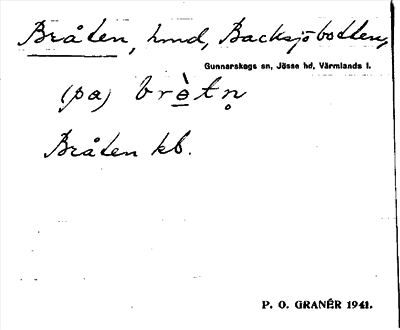 Bråten, hmd, Backsjöbotten,
Gunnarskogs sn, Jösse hd, Värmlands l.
(pa) brè̠tn̥
Bråten kb.
P. O. GRANÉR 1941.